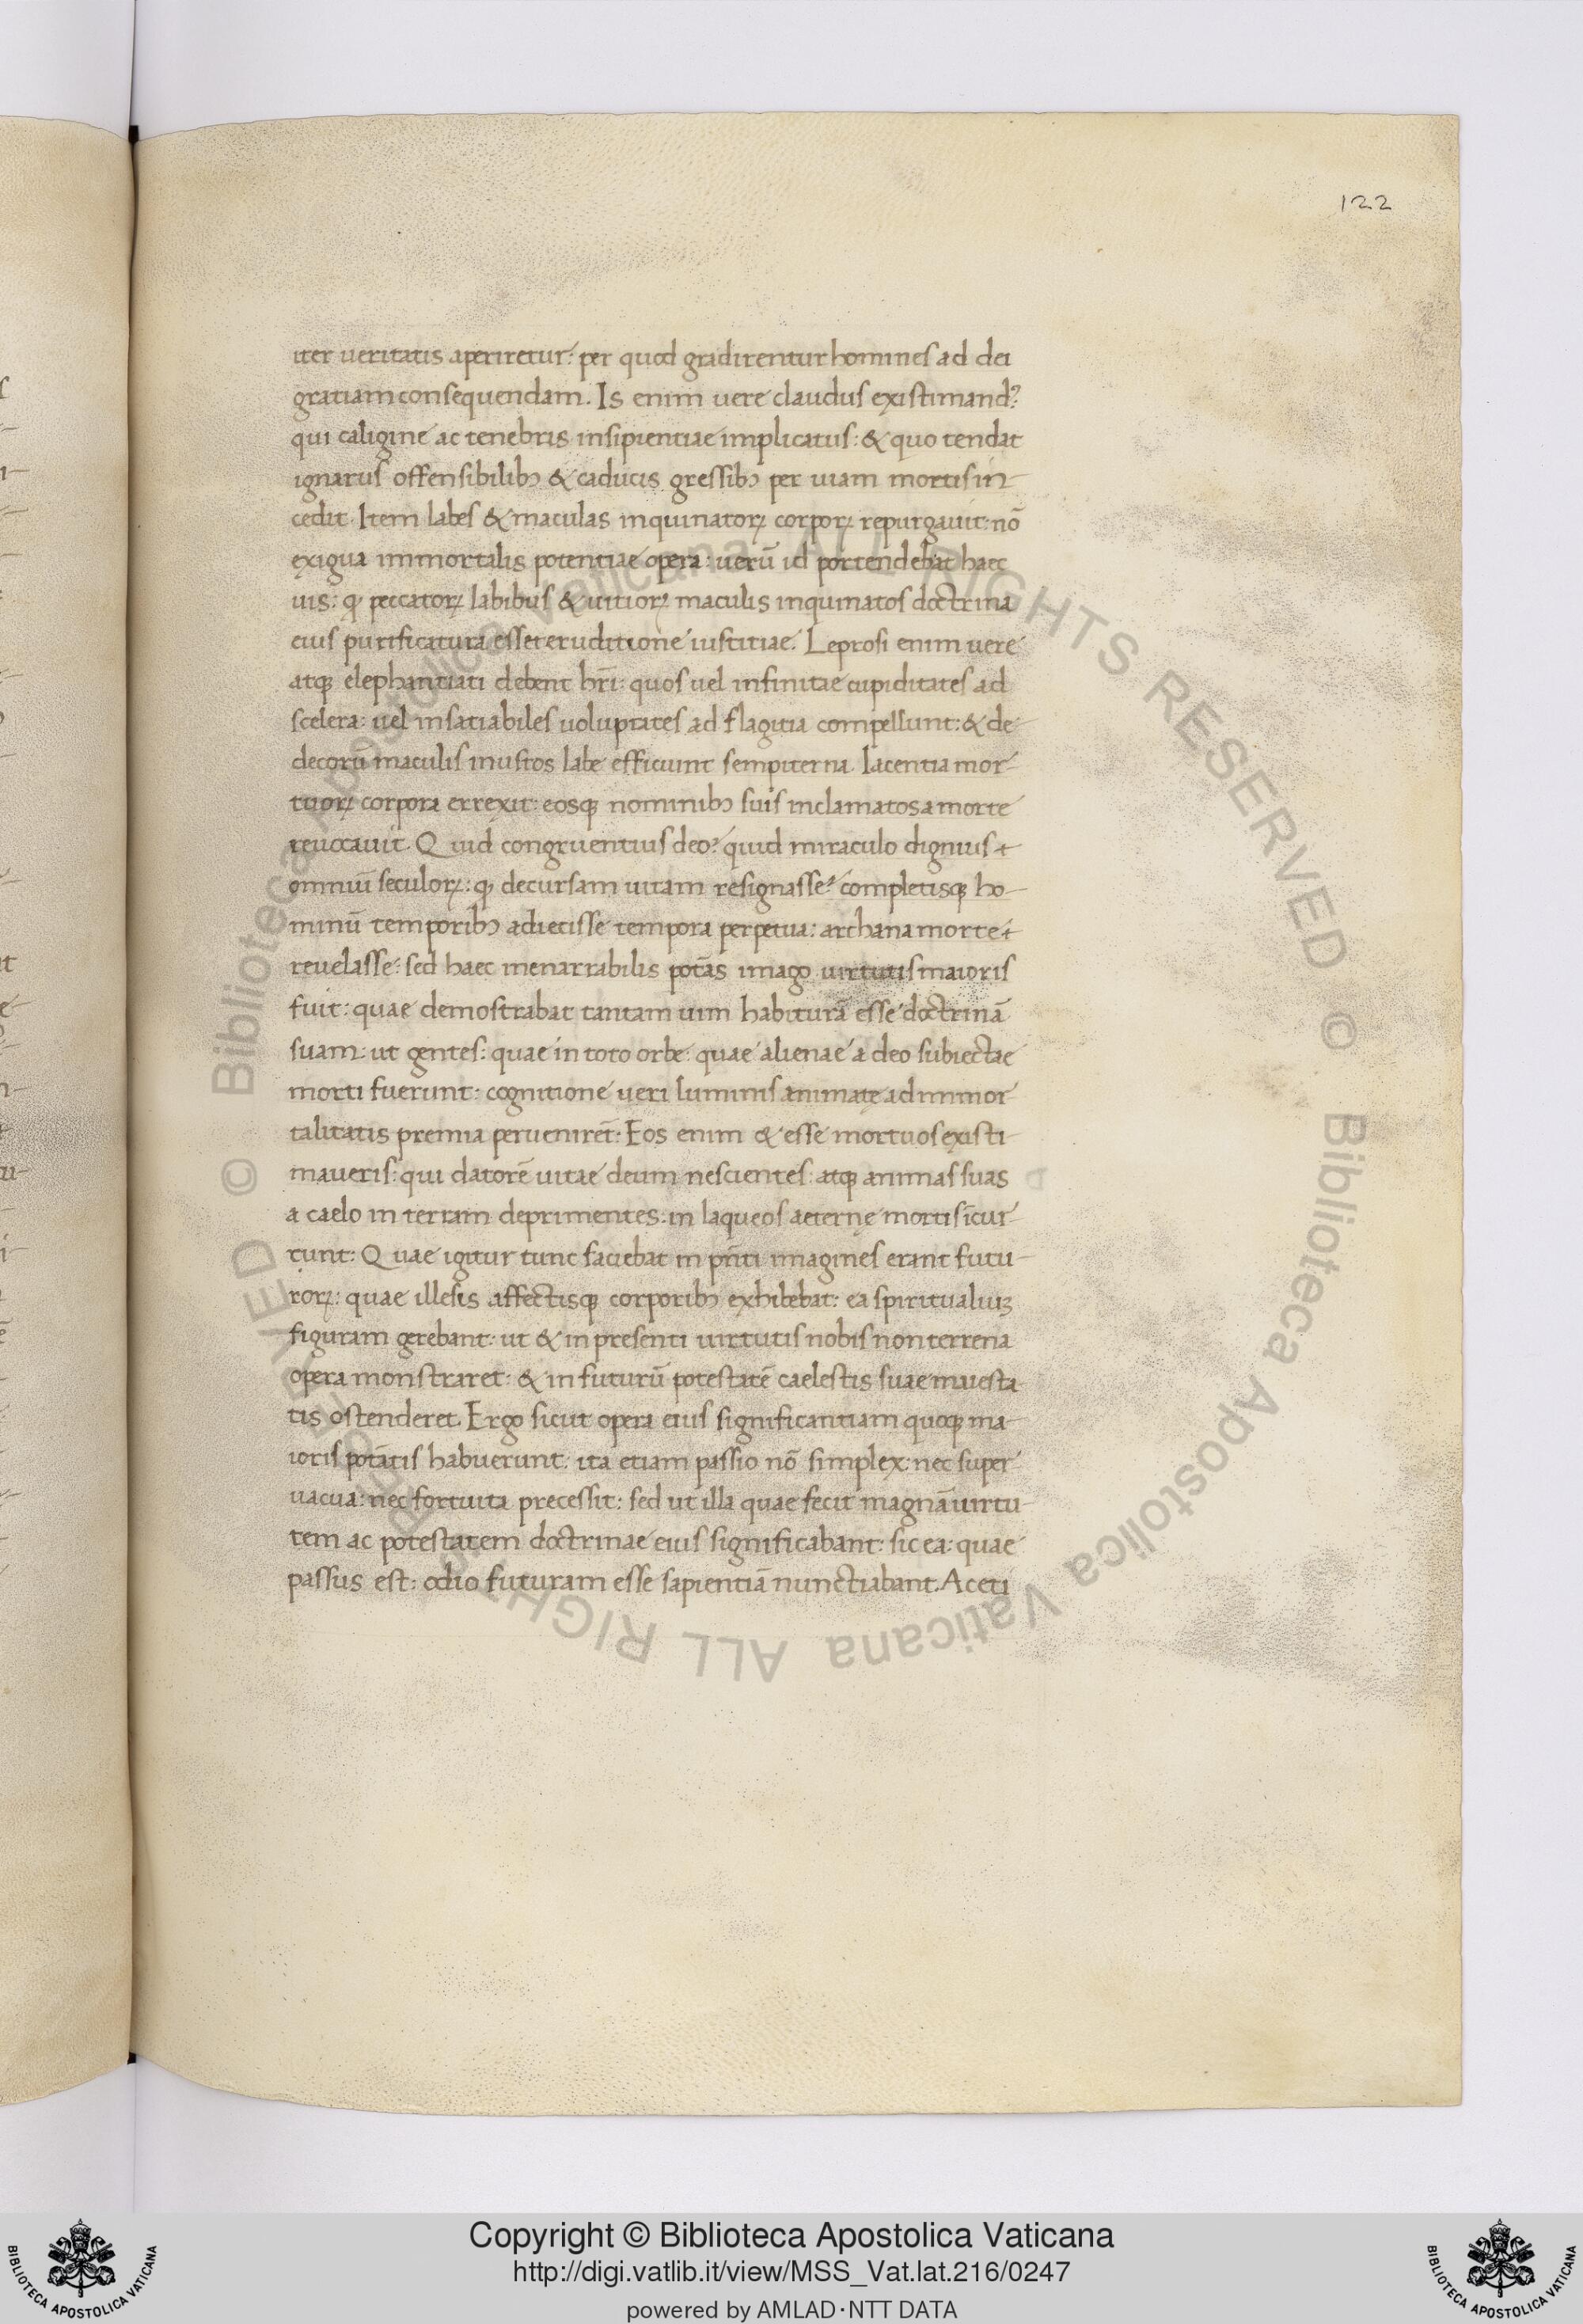 122
iter ueritatis aperiretur: per quod gradirentur homines ad dei
gratiam consequendam. Is enim uere claudus existimandꝰ
qui caligine ac tenebris insipientiae implicatus: & quo tendat
ignarus offensibilibꝫ & caducis gressibꝫ per uiam mortis in-
cedit. Item labes & maculas inquinatoꝝ corpoꝝ repurgauit: nõ
exigua immortalis potentiae opera: uerũ id portendebat haec
uis: ꝙ peccatoꝝ labibus & uitioꝝ maculis inquinatos doctrina
eius purificatura esset eruditione iustitiae. Leprosi enim uere
atqꝫ elephantiati debent hr̃i: quos uel infinitae cupiditates ad
scelera: uel insatiabiles uoluptates ad flagitia compellunt: & de-
decorũ maculis inustos labe efficiunt sempiterna. Iacentia mor-
tuoꝝ corpora errexit: eosqꝫ nominibꝫ suis inclamatos a morte
reuocauit. Quid congruentius deo? quid miraculo dignius
omniũ seculoꝝ: ꝙ decursam uitam resignasse? completisqꝫ ho-
minũ temporibꝫ adiecisse tempora perpetua: archana morte
reuelasse: sed haec inenarrabilis potãs imago uirtutis maioris
fuit: quae demostrabat tantam uim habiturã esse doctrinã
suam: ut gentes: quae in toto orbe: quae alienae a deo subiectae
morti fuerunt: cognitione ueri luminis animatę ad inmor
talitatis premia peruenirẽt: Eos enim & esse mortuos existi-
maueris: qui datorẽ uitae deum nescientes: atqꝫ animas suas
a caelo in terram deprimentes: in laqueos aeternę mortis ĩcur-
runt: Quae igitur tunc faciebat in pñti imagines erant futu-
roꝝ: quae illesis affectisqꝫ corporibꝫ exhibebat: ea spiritualiuꝫ
figuram gerebant: ut & in presenti uirtutis nobis non terrena
opera monstraret: & in futurũ potestatẽ caelestis suae maiesta
tis ostenderet. Ergo sicut opera eius significantiam quoqꝫ ma-
ioris potãtis habuerunt: ita etiam passio nõ simplex: nec super
uacua: nec fortuita precessit: sed ut illa quae fecit magnã uirtu-
tem ac potestatem doctrinae eius significabant: sic ea: quae
passus est: odio futuram esse sapientiã nunctiabant. Aceti
© Biblioteca Apostolica Vaticana ALL RIGHTS RESERVED
© Biblioteca Apostolica Vaticana ALL RIGHTS RESERVED
Copyright © Biblioteca Apostolica Vaticana
http://digi.vatlib.it/view/MSS_Vat.lat.216/0247
powered by AMLAD·NTT DATA
BIBLIOTECA APOSTOLICA VATICANA
BIBLIOTECA APOSTOLICA VATICANA